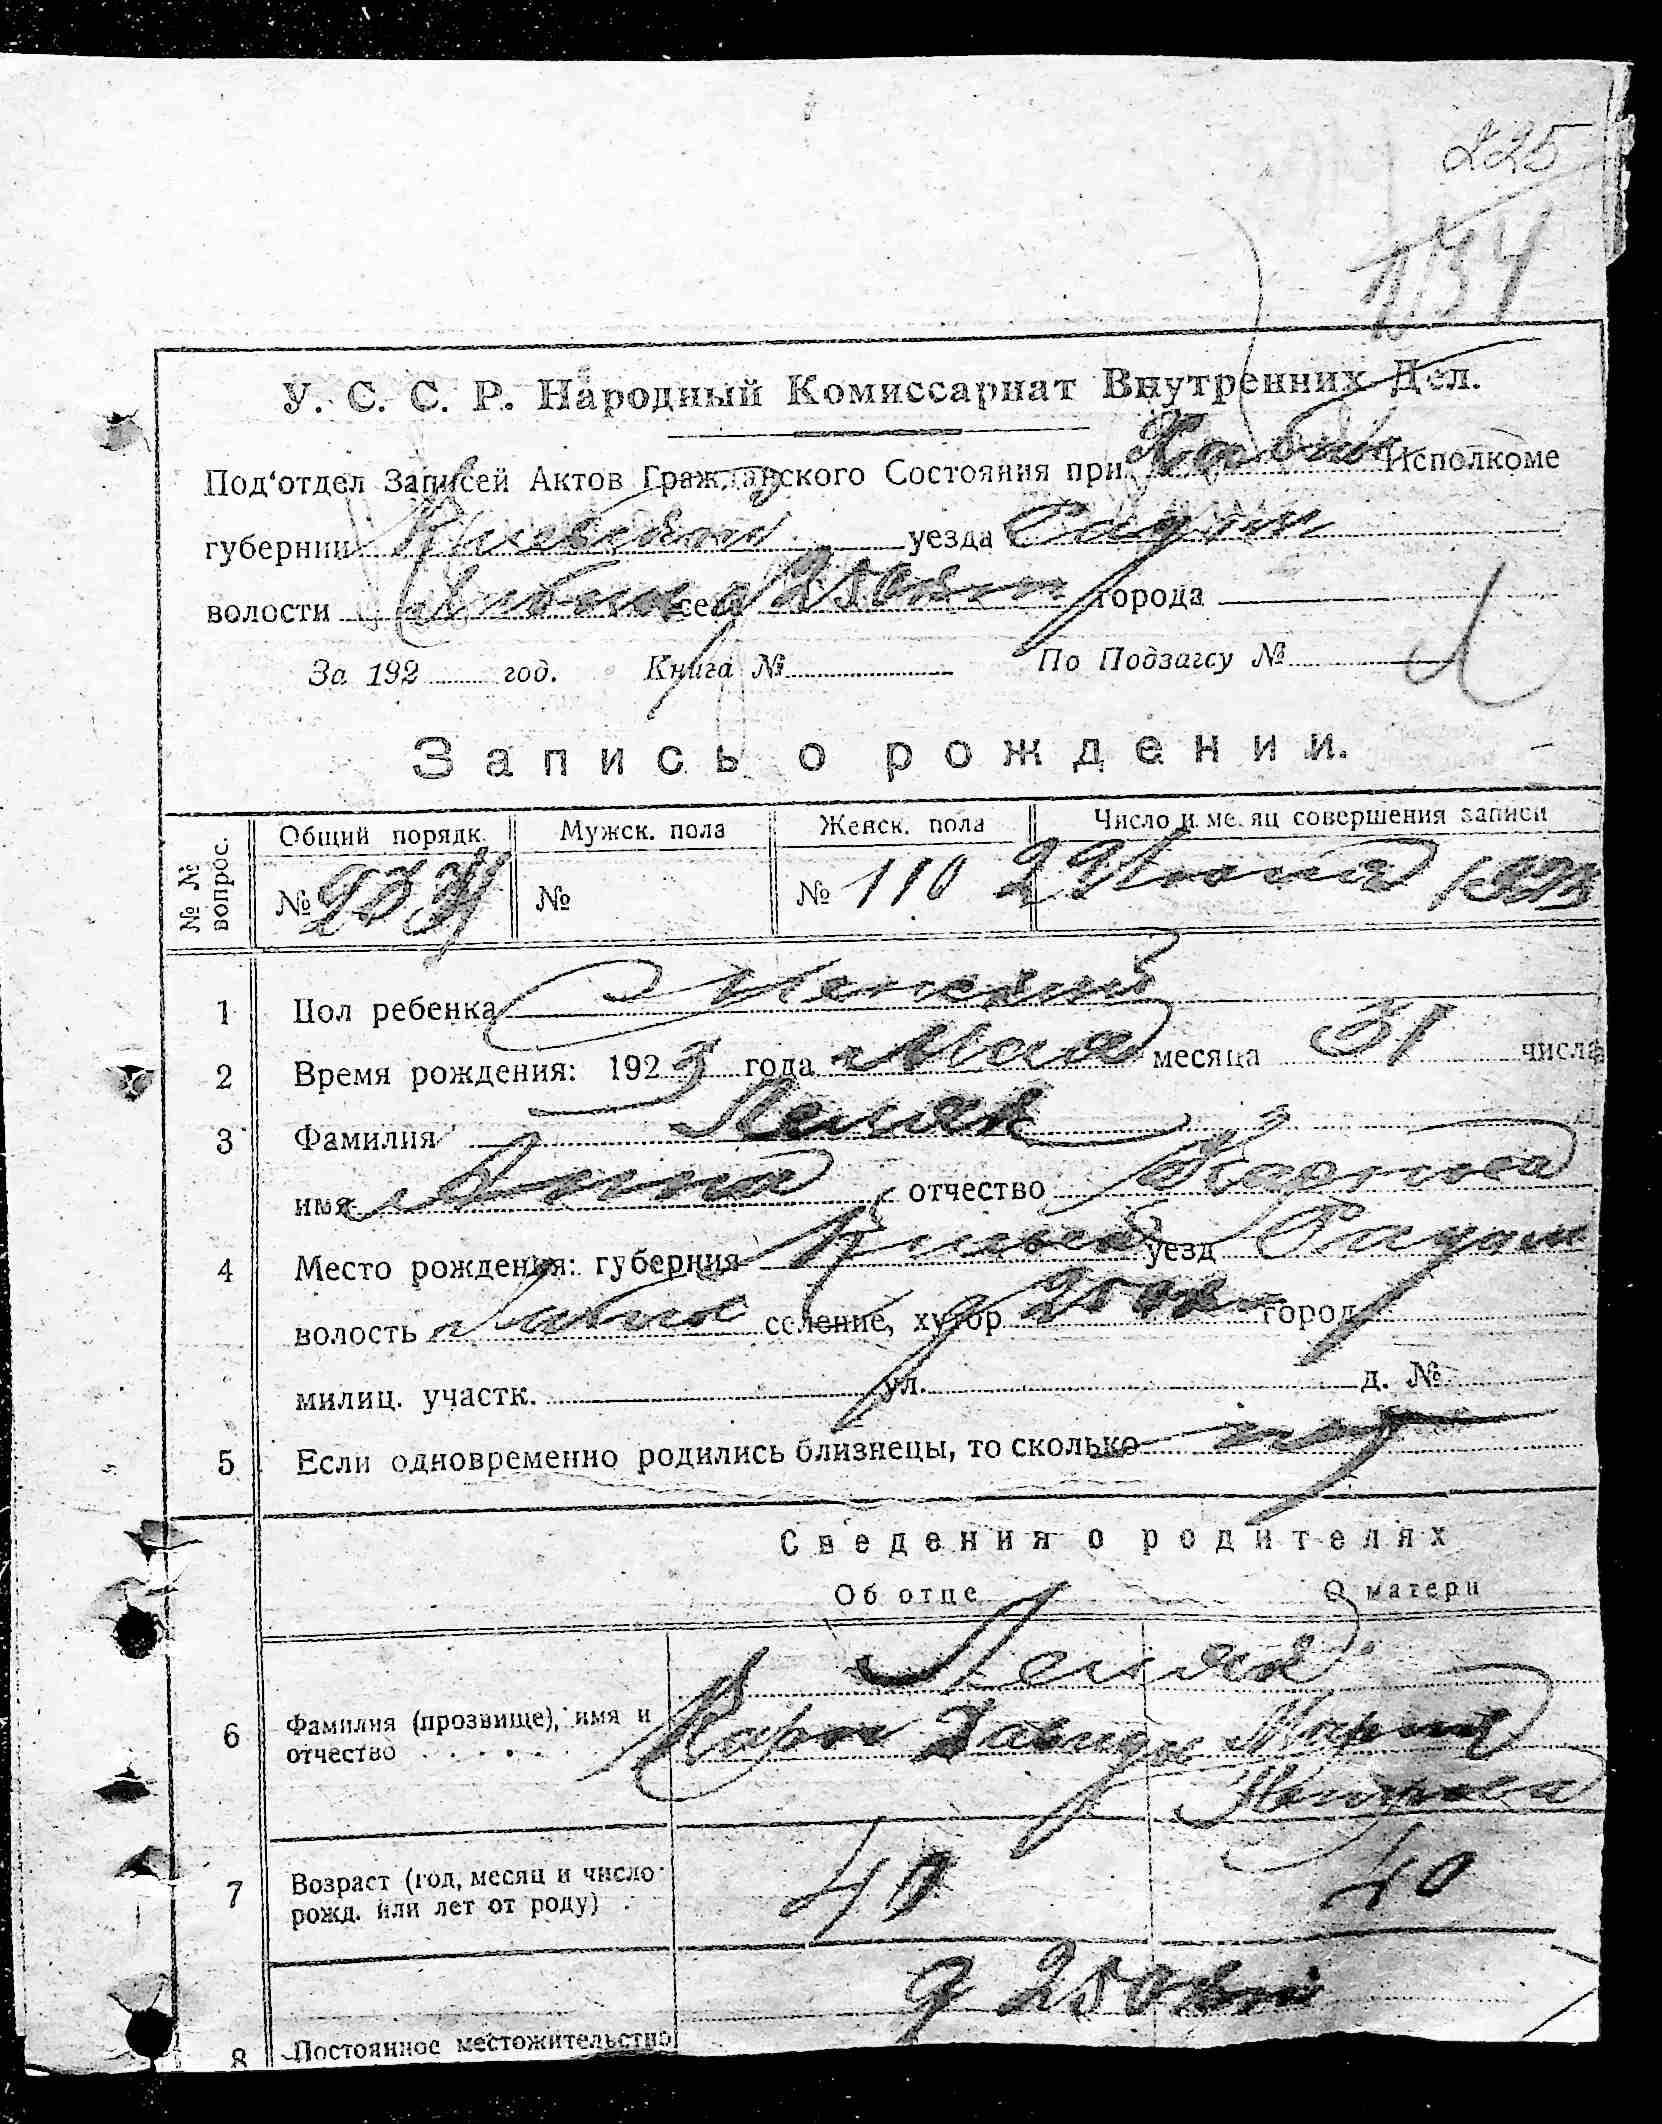 225
У. С. С. Р. Народный Комиссариат Внутренних Дел.
Под'отдел Записей Актов Гражданского Состояния при Хабно Исполкоме
губернии Киевской уезда Радом
волости Хабно села города
За 192 год. Книга № По Подзагсу №
Запись о рождении.
№ № вопрос. Общий порядк. Мужск. пола Женск. пола Число и месяц совершения записи
№ № № 110 22 Июня 1923
1 Пол ребенка Женский
2 Время рождения: 1923 года Мая месяца 31 числа
3 Фамилия
имя Анна отчество Карповна
4 Место рождения: губерния Киев уезд Радом
волость Хабно селение, хутор город
милиц. участк. ул. д. №
5 Если одновременно родились близнецы, то сколько нет
Сведения о родителях
Об отце О матери
6 Фамилия (прозвище), имя и отчество
Карп Давидов Мария
7 Возраст (год, месяц и число рожд. или лет от роду) 40 40
8 Постоянное местожительство